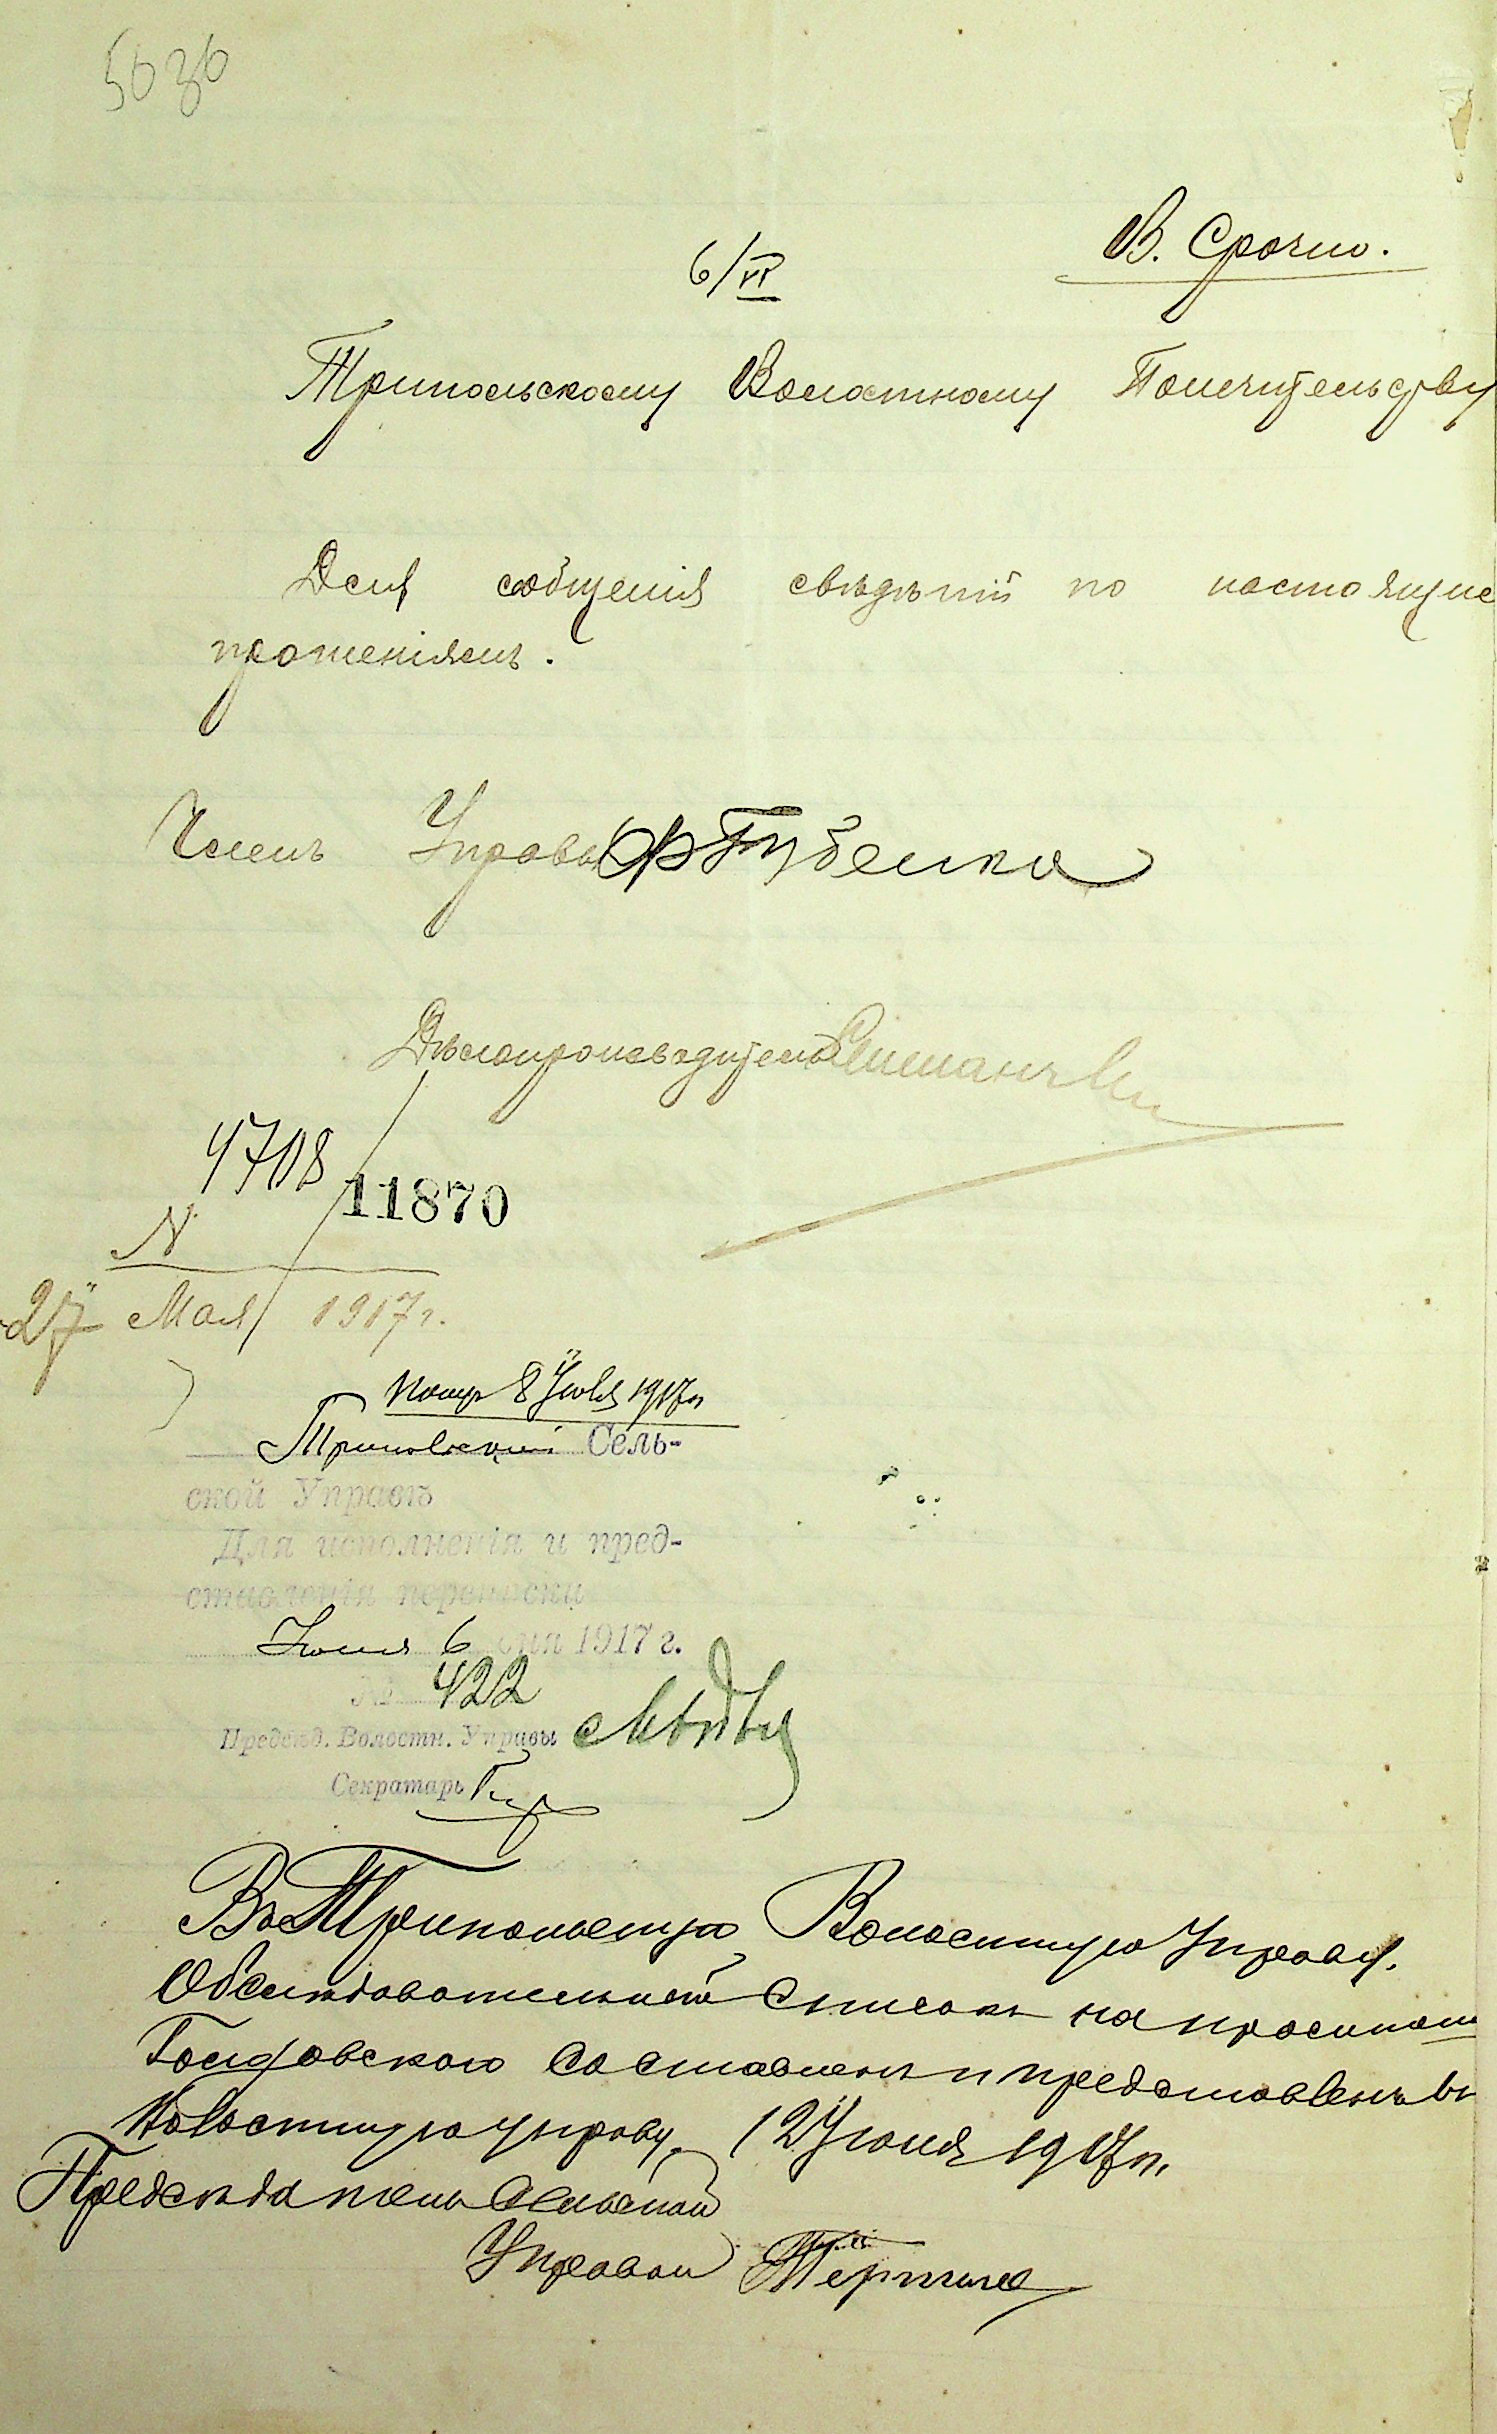 5636
В. Срочно.
6/VI
Трипольскому Волостному Попечительству
Для сообщенія свѣдѣній по настояще
прошеніямъ.
Членъ Управы Губенко
Дѣлопроизводитель
4708/11870
N
27 Мая 1917 г.
Получ 8 Іюня 1917 г
Трипольской Сель-
ской Управѣ
Для исполненія и пред-
ставленія переписки
Іюня 6 дня 1917 г.
№ 422
Предсѣд. Волостн. Управы
Секретарь
Въ Трипольскую Волостную Управу.
Обслѣдовательный Списокъ на
составленъ и представленъ въ
Волостную управу. 12 Іюня 1917 г.
Предсѣдатель Сельской
Управы